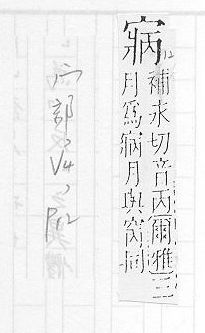 寎
補永切音丙爾雅三
月爲寎月與窉同
12
宀部、V4、P12